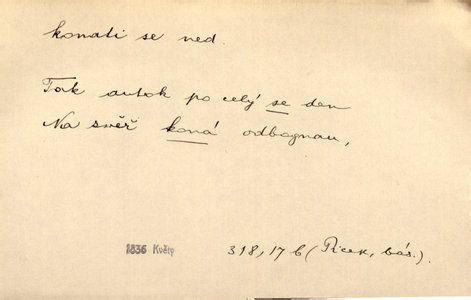 konati se ned.
Tak autok po celý se den
Na svěř koná odbognau,
1836 Květy
318,17 b (Picek, bás.).